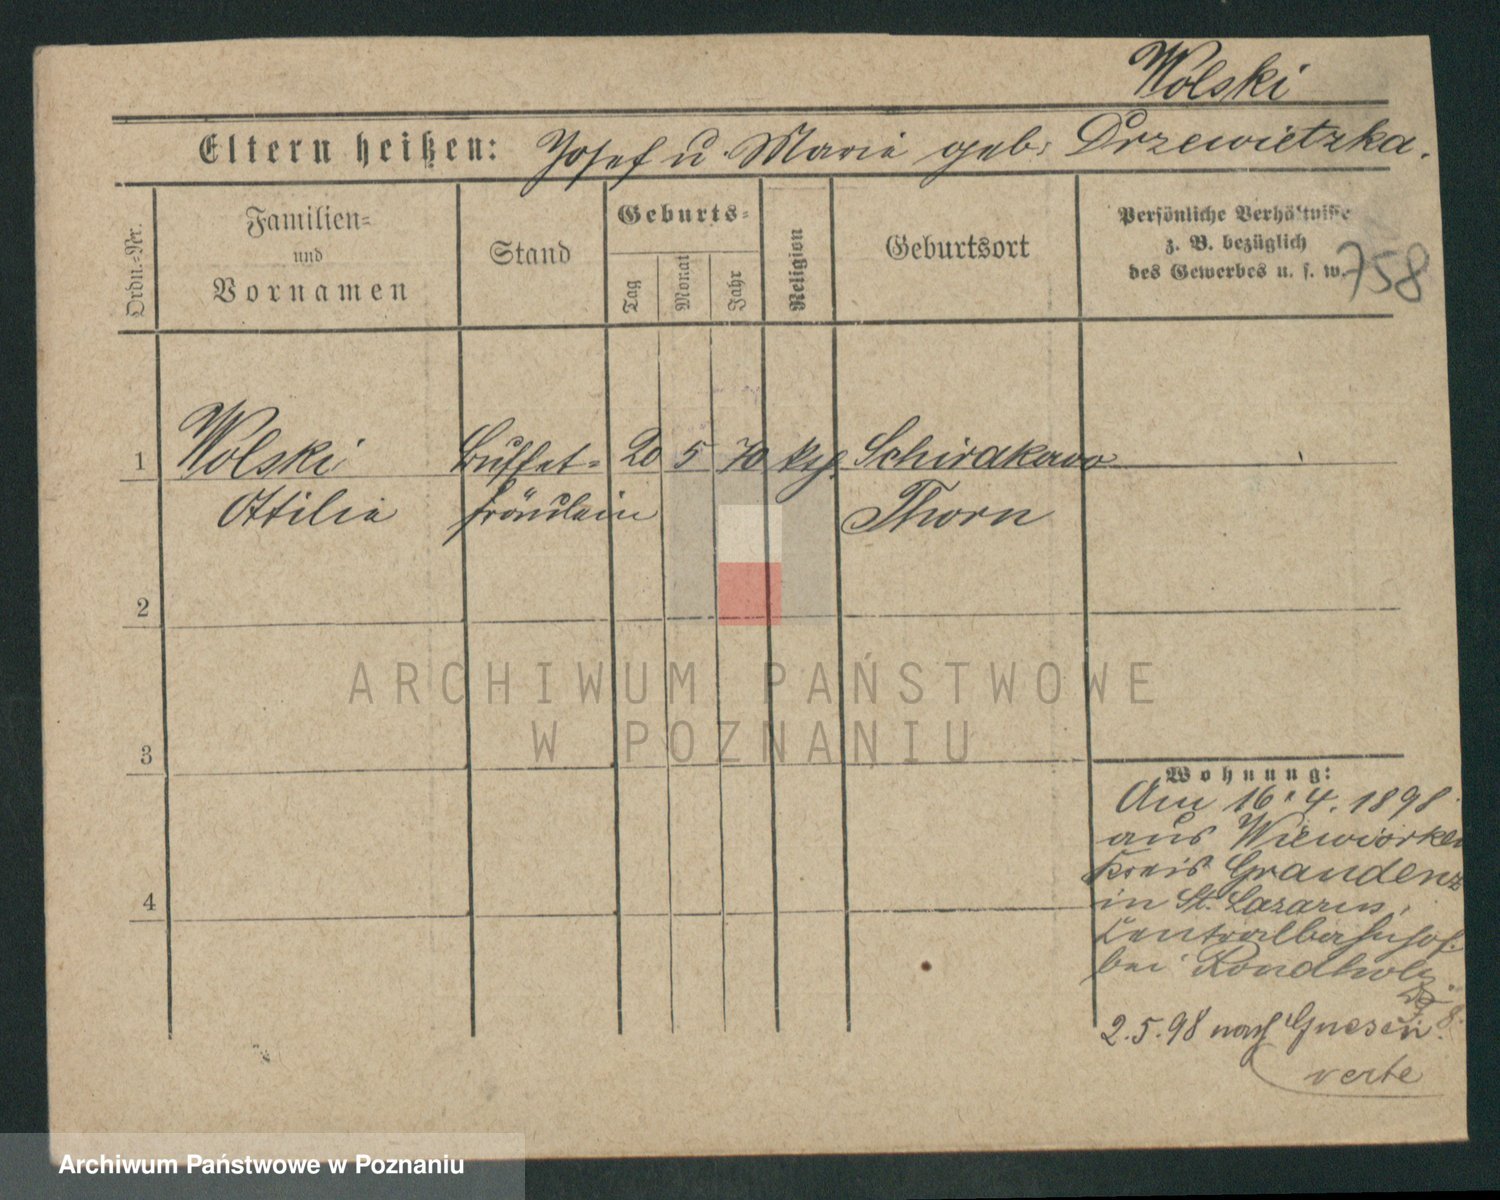 Wolski
Eltern heißen: Josef u. Marie geb: Drzewietzka.
Ordn.-Nr.
Familien-
und
Vornamen
Stand
Geburts-
Tag
Monat
Jahr
Religion
Geburtsort
Persönliche Verhältnisse
z. B. bezüglich
des Gewerbes u. s. w.
758
1 Wolski Buffet- 20 5 70 Schirakowo
Ottilie fräulein Thorn
2
3
4
Wohnung:
Am 16.4.1898
aus Wiewiorken
Kreis Graudenz
in St. Lazarus,
Centralbahnhof
bei Rondholz
2.5.98 nach Gnesen.
verte
ARCHIWUM PAŃSTWOWE
W POZNANIU
Archiwum Państwowe w Poznaniu